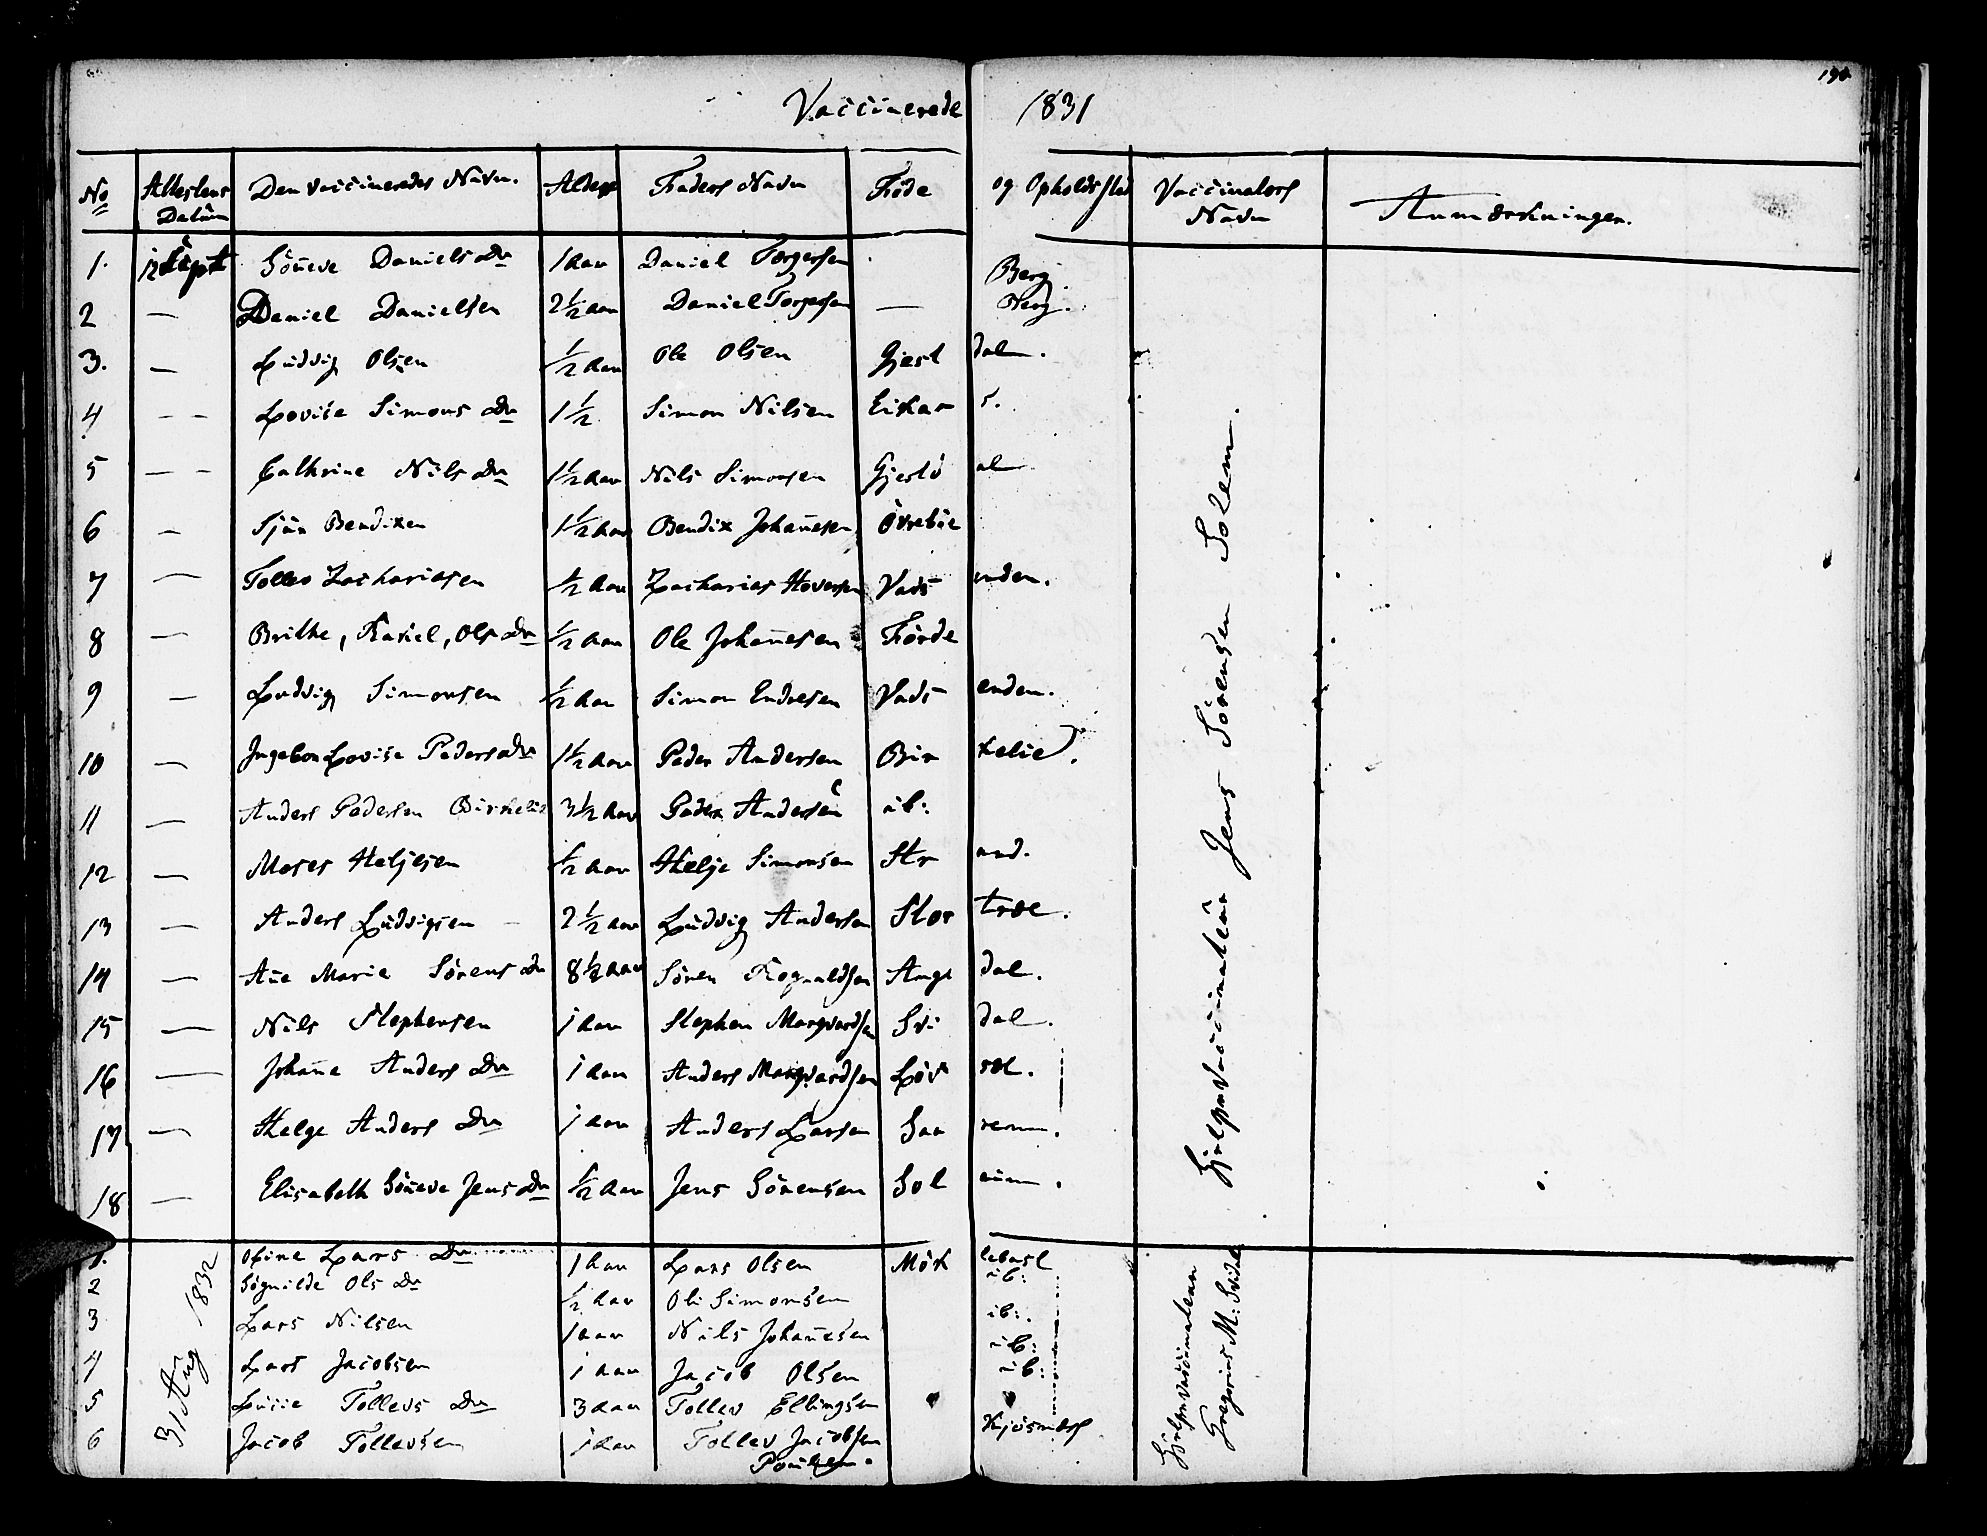 190
Vaccinerede 1831
No Attestens Datum Den vaccineredes Navn. Alder Faders Navn Føde og Opholdssted Vaccinateurs Navn Anmærkninger.
1. 12 Sept Söneve Daniels Dr 1 Aar Daniel Torgersen Berg.
2 — Daniel Danielsen 2½ Aar Daniel Torgersen — Berg.
3. — Ludvig Olsen ½ Aar Ole Olsen Gjesdal.
4 — — Lovise Simons Dr 1½ Simon Nilsen Eikaas.
5 — — Cathrine Nils Dr 1½ Aar Nils Simonsen Gjesdal
6 — Sjur Bendixen 1½ Aar Bendix Johannesen Övreböe
7 — Tollev Zachariasen ½ Aar Zacharias Hoversen Vadsenden.
8 — Brithe, Rakel, Ols Dr ½ Aar Ole Johannesen Förde
9 — Ludvig Simonsen ½ Aar Simon Endresen Vadsenden.
10 — Ingebor Lovise Peders Dr 1½ Aar Peder Andersen Birkelie.
11 — Anders Pedersen Birkelie 3½ Aar Peder Andersen ib:
12 — Moses Heljesen ½ Aar Helje Simonsen Strand.
13 — Anders Ludvigsen 2½ Aar Ludvig Andersen Stortræe.
14 — Ane Marie Sörens Dr 8½ Aar Sören Rognaldsen Angedal.
15 — Nils Stephensen 1 Aar Stephen Marqvardsen Svidal.
16 — Johanne Anders Dr 1 Aar Anders Marqvardsen
17 — Helge Anders Dr 1 Aar Anders Larsen
18 — Elisabeth Söneve Jens Dr ½ Aar Jens Sörensen Soleim.
Hjelpevaccinateur Jens Sörensen Solem.
31 Aug 1832
1. Oline Lars Dr 1 Aar Lars Olsen Mörkebast
2 Sögnilde Ols Dr ½ Aar Ole Simonsen ib:
3 Lars Nilsen 1 Aar Nils Johannesen ib:
4 Lars Jacobsen 1 Aar Jacob Olsen ib:
5 Lucie Tollevs Dr 3 Aar Tollev Ellingsen ib:
6 Jacob Tollevsen 1 Aar Tollev Jacobsen Kjösnæs
Hjelpevaccinateur
Gregorius M: Svidal